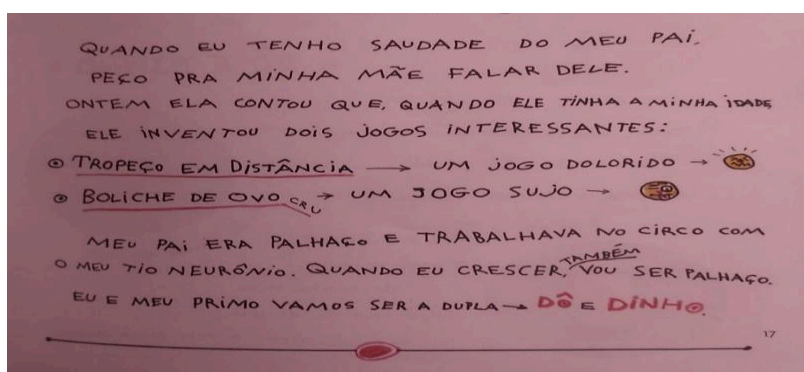 QUANDO EU TENHO SAUDADE DO MEU PAI,
PEÇO PRA MINHA MÃE FALAR DELE.
ONTEM ELA CONTOU QUE, QUANDO ELE TINHA A MINHA IDADE
ELE INVENTOU DOIS JOGOS INTERESSANTES:
⊙ TROPEÇO EM DISTÂNCIA → UM JOGO DOLORIDO →
⊙ BOLICHE DE OVO CRU → UM JOGO SUJO →
MEU PAI ERA PALHAÇO E TRABALHAVA NO CIRCO COM
O MEU TIO NEURÔNIO. QUANDO EU CRESCER, TAMBÉM VOU SER PALHAÇO.
EU E MEU PRIMO VAMOS SER A DUPLA → DÔ E DINHO.
17